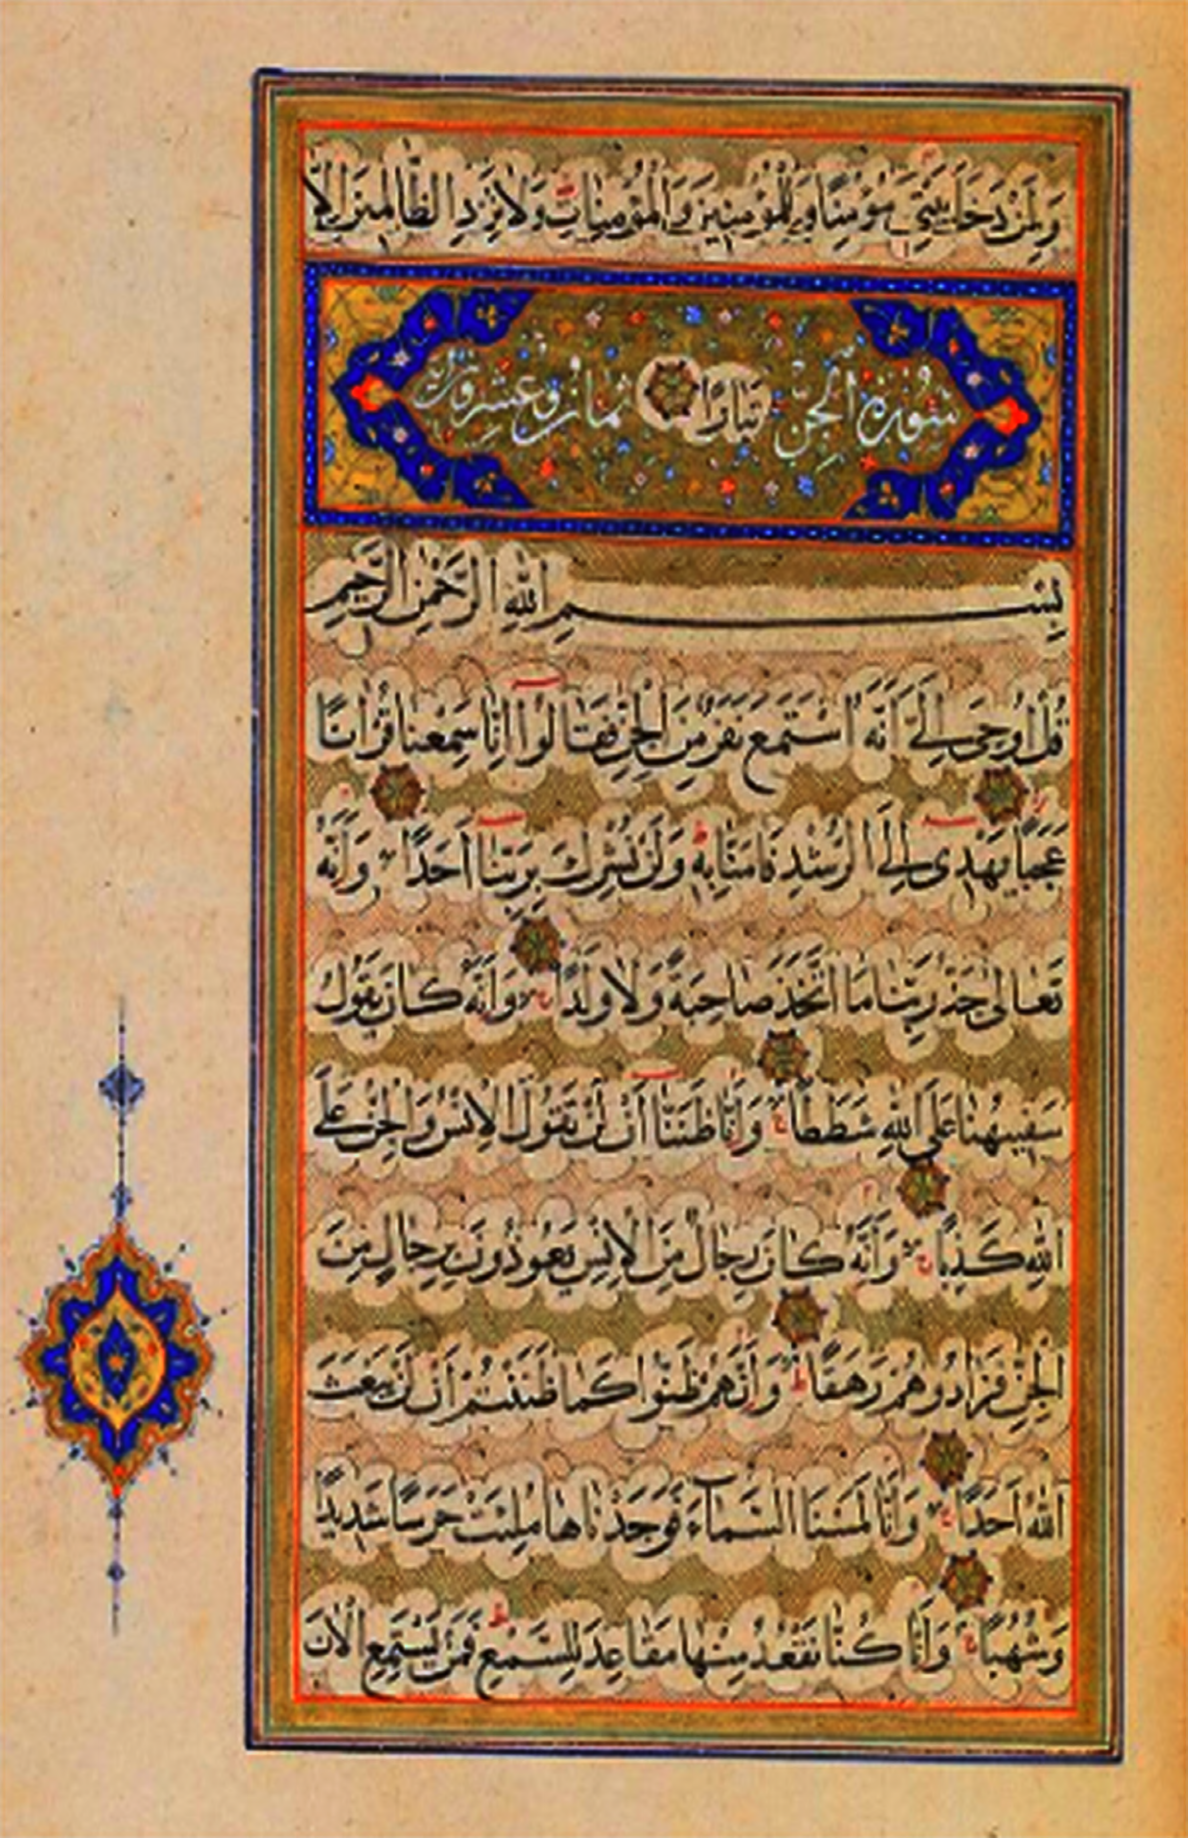 وَلِمَنْ دَخَلَ بَيْتِيَ مُؤْمِنًا وَلِلْمُؤْمِنِينَ وَالْمُؤْمِنَاتِ ط وَلَا تَزِدِ الظَّالِمِينَ اِلَّا
سُورَةُ الْجِنِّ تَبَارًا ثمان وعشرون اية
بِسْمِ اللّٰهِ الرَّحْمٰنِ الرَّحِيمِ
قُلْ اُوحِىَ اِلَىَّ اَنَّهُ اسْتَمَعَ نَفَرٌ مِنَ الْجِنِّ فَقَالُوا اِنَّا سَمِعْنَا قُرْاٰنًا
عَجَبًا يَهْدِى اِلَى الرُّشْدِ فَاٰمَنَّا بِهِ ط وَلَنْ نُشْرِكَ بِرَبِّنَا اَحَدًا وَاَنَّهُ
تَعَالٰى جَدُّ رَبِّنَا مَا اتَّخَذَ صَاحِبَةً وَلَا وَلَدًا وَاَنَّهُ كَانَ يَقُولُ
سَفِيهُنَا عَلَى اللّٰهِ شَطَطًا وَاَنَّا ظَنَنَّا اَنْ لَنْ تَقُولَ الْاِنْسُ وَالْجِنُّ عَلَى
اللّٰهِ كَذِبًا وَاَنَّهُ كَانَ رِجَالٌ مِنَ الْاِنْسِ يَعُوذُونَ بِرِجَالٍ مِنَ
الْجِنِّ فَزَادُوهُمْ رَهَقًا ط وَاَنَّهُمْ ظَنُّوا كَمَا ظَنَنْتُمْ اَنْ لَنْ يَبْعَثَ
اللّٰهُ اَحَدًا وَاَنَّا لَمَسْنَا السَّمَاءَ فَوَجَدْنَاهَا مُلِئَتْ حَرَسًا شَدِيدًا
وَشُهُبًا وَاَنَّا كُنَّا نَقْعُدُ مِنْهَا مَقَاعِدَ لِلسَّمْعِ ط فَمَنْ يَسْتَمِعِ الْاٰنَ